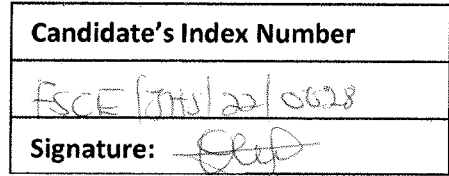 Candidate's Index Number
FSCE/JHS/22/0628
Signature: